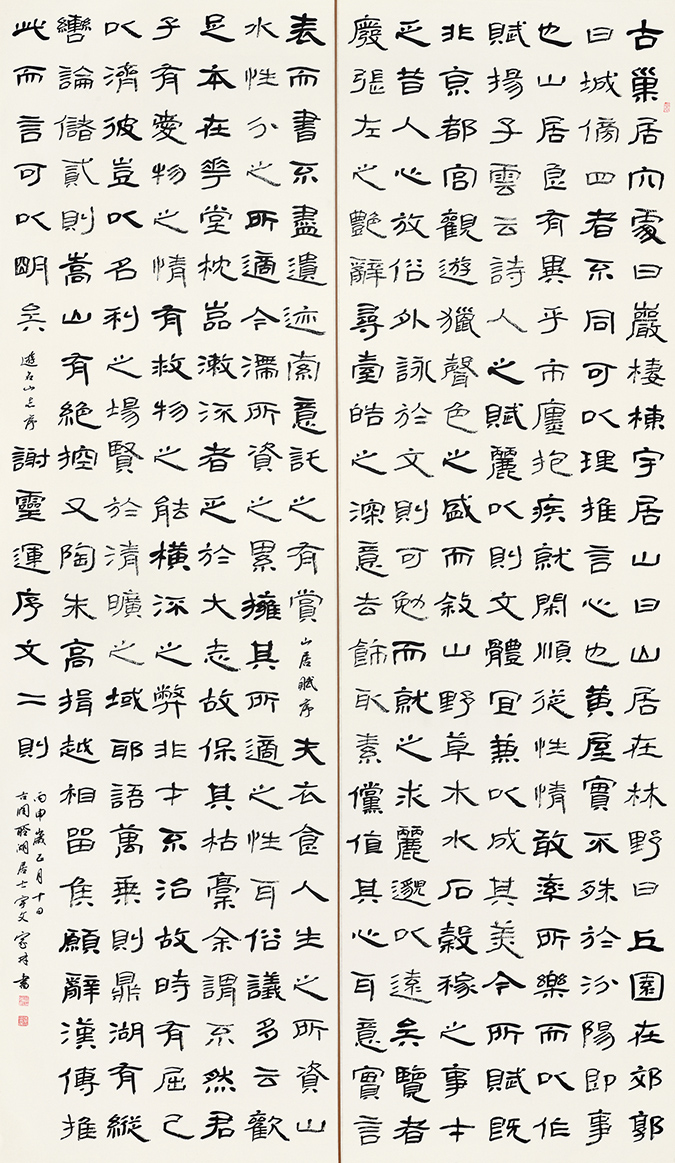 古巢居穴處曰巖棲棟宇居山曰山居在林野曰丘園在郊郭
曰城傍四者不同可以理推言心也黃屋實不殊於汾陽即事
也山居良有異乎市廛抱疾就閑順從性情敢率所樂而以作
賦揚子雲云詩人之賦麗以則文體宜兼以成其美今所賦既
非京都宮觀遊獵聲色之盛而敘山野草木水石穀稼之事才
乏昔人心放俗外詠於文則可勉而就之求麗邈以遠矣覽者
廢張左之艷辭尋臺皓之深意去飾取素儻值其心耳意實言
表而書不盡遺迹索意託之有賞 山居賦序 夫衣食人生之所資山
水性分之所適今滯所資之累擁其所適之性耳俗議多云歡
足本在華堂枕嵒漱流者乏於大志故保其枯槁余謂不然君
子有愛物之情有救物之能橫流之弊非才不治故時有屈己
以濟彼豈以名利之場賢於清曠之域耶語萬乘則鼎湖有縱
轡論儲貳則嵩山有絕控又陶朱高揖越相留侯願辭漢傅推
此而言可以明矣 遊名山志序 謝靈運序文二則
丙申歲 月十日
居士宇文家林書